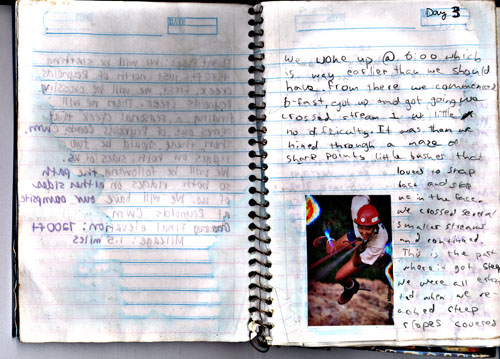 DATE
we will be
just north of Reynolds
Creek. First, we will be crossing
Reynolds Creek. Then we will
seasonal creek that
comes out of Reynolds
there should be two
ridges on both sides of us.
We will be following the path
so both ridges on either sides
of us. We will have our campsite
at Reynolds Cwm
final elevation: 7200 ft
Mileage: 1.5 miles
Day 3
We woke up @ 6:00 which
is way earlier than we should
have. From there we commenced
b-fest, got up and got going. We
crossed stream 1 w/ little
no difficulty. It was then we
hiked through a maze of
sharp pointy little bushes that
loved to snap
back and
us in the face.
We crossed several
smaller streams
and continued.
This is the part
where it got steep
we were all
ted when we re
ached steep
slopes covered